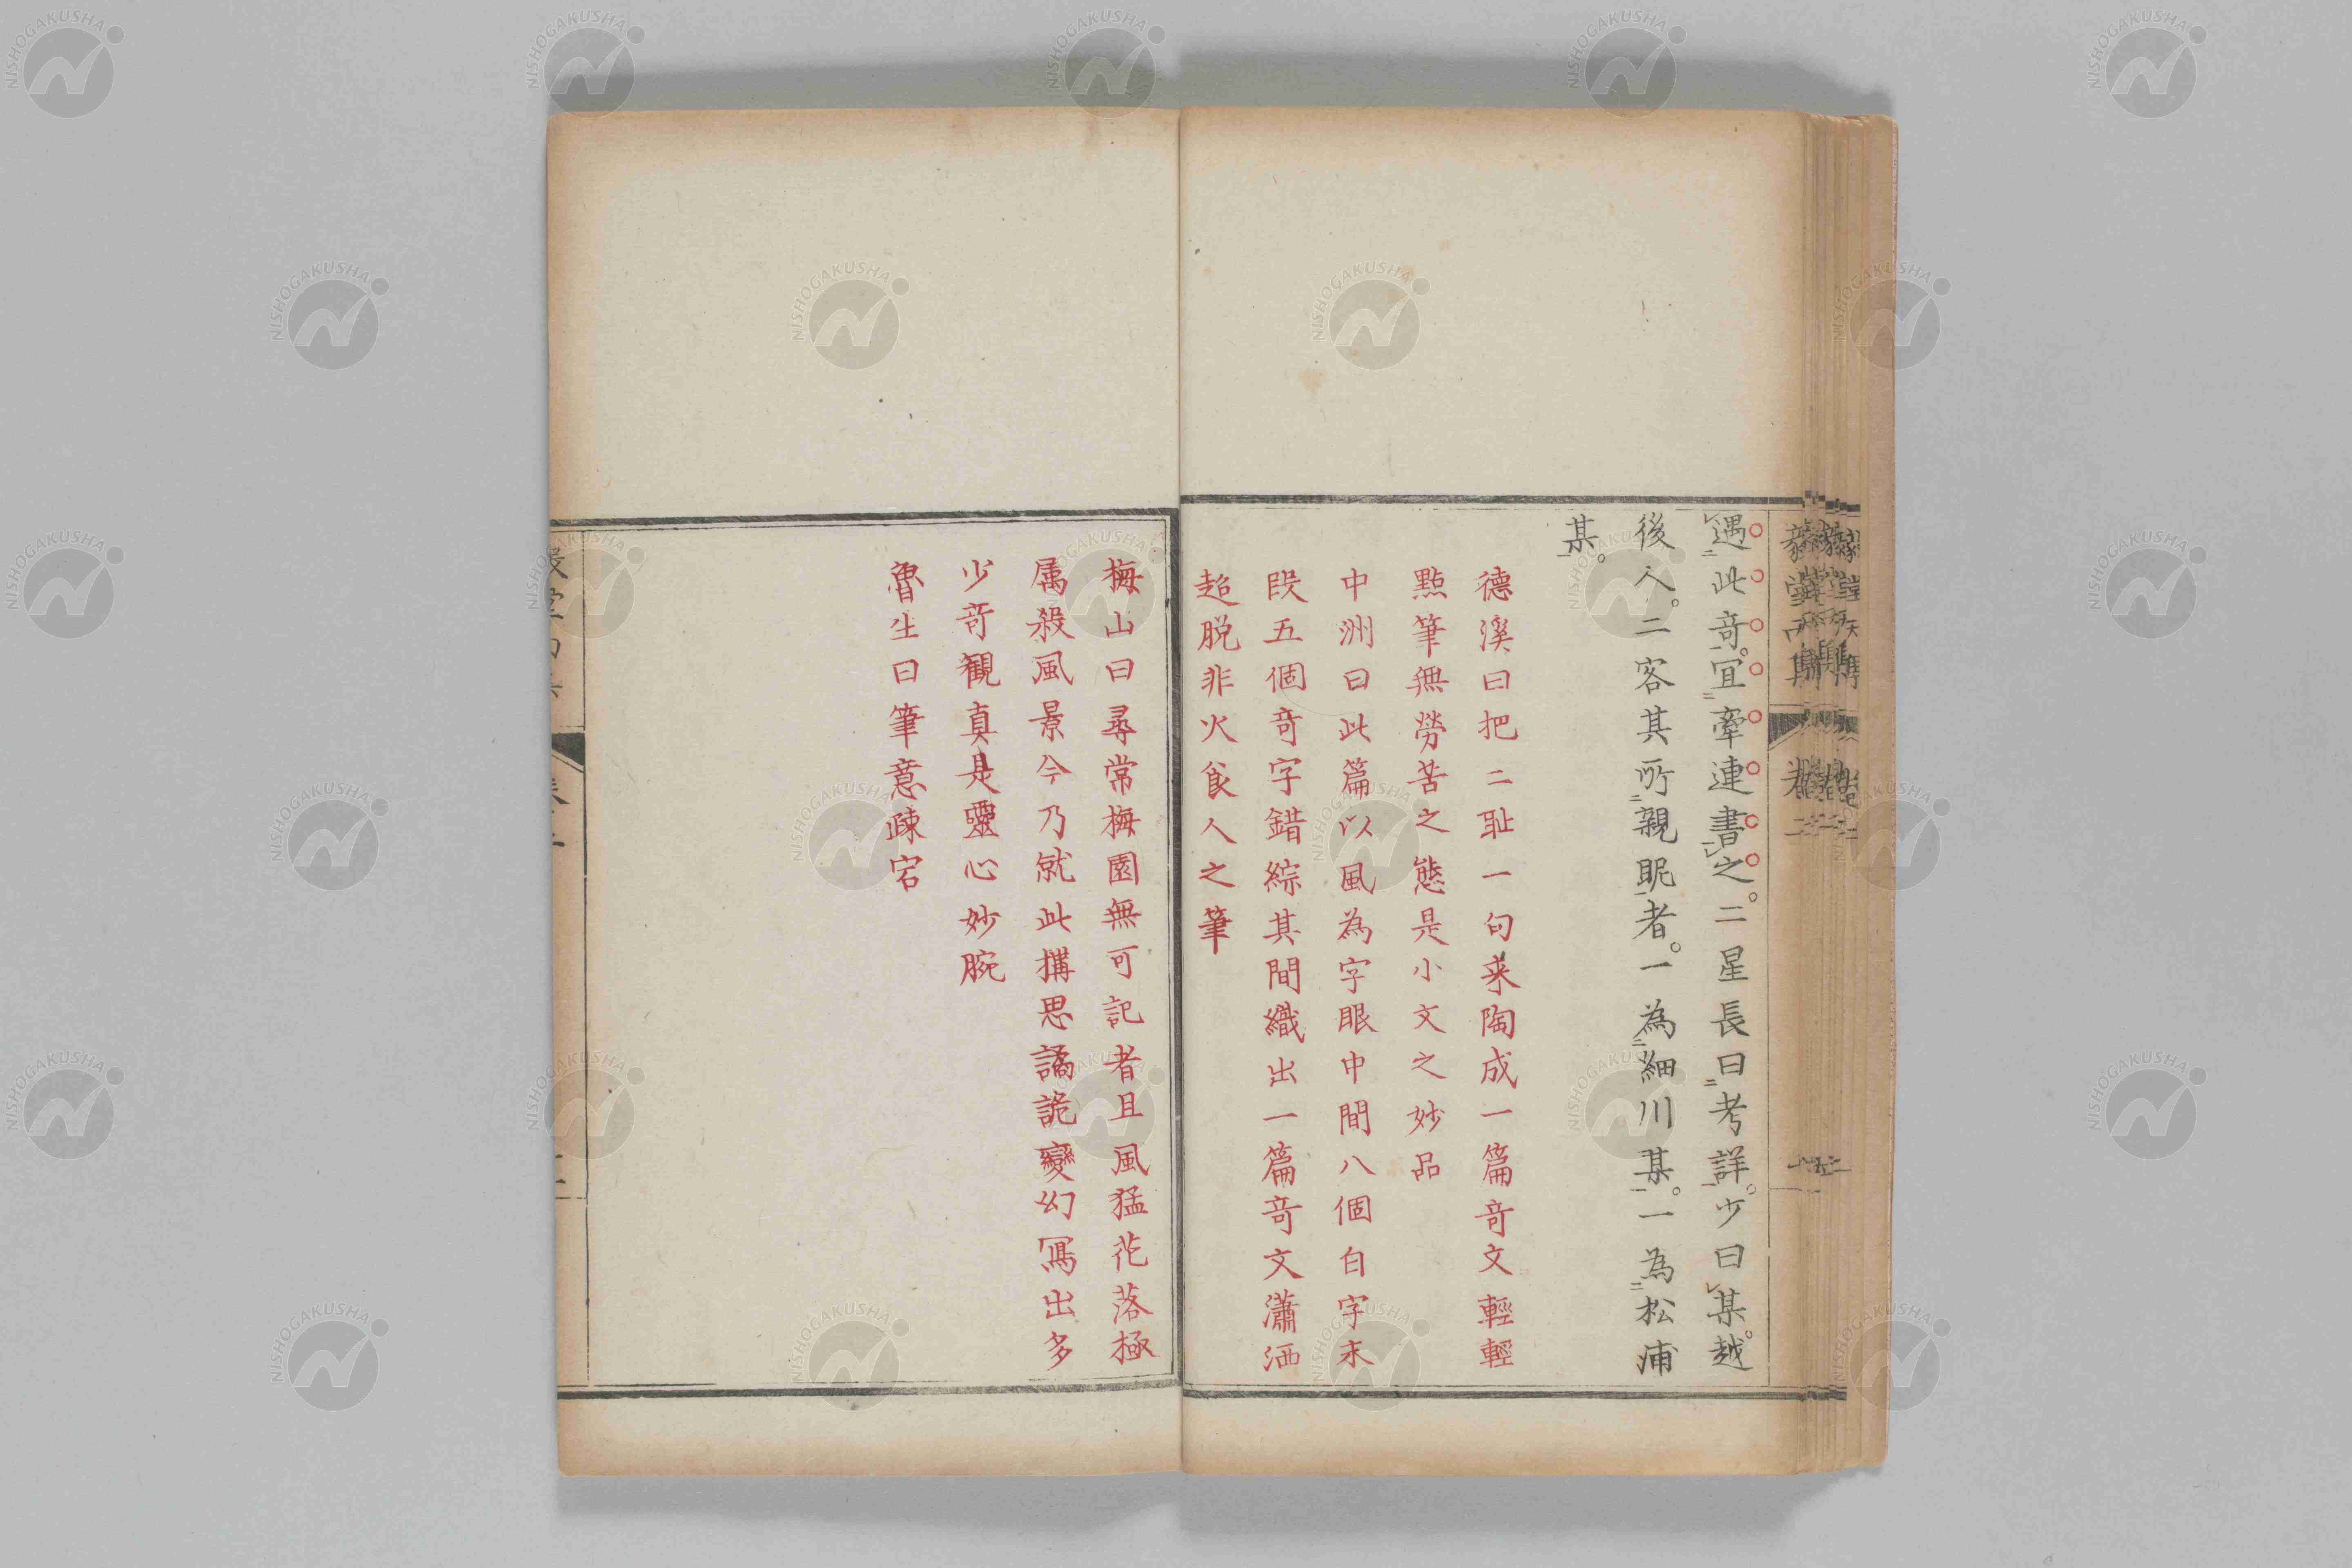 遇此奇。宜牽連書之。二星長曰考詳。少曰某。越
後人。二客其所親眤者。一為細川某。一為松浦
某。
德溪曰把二耻一句来陶成一篇奇文輕輕
點筆無勞苦之態是小文之妙品
中洲曰此篇以風為字眼中間八個白字末
段五個奇字錯綜其間織出一篇奇文瀟洒
超脱非火食人之筆
梅山曰尋常梅園無可記者且風猛花落極
属殺風景今乃就此搆思譎詭變幻冩出多
少奇観真是靈心妙腕
魯生曰筆意疎宕
NISHOGAKUSHA